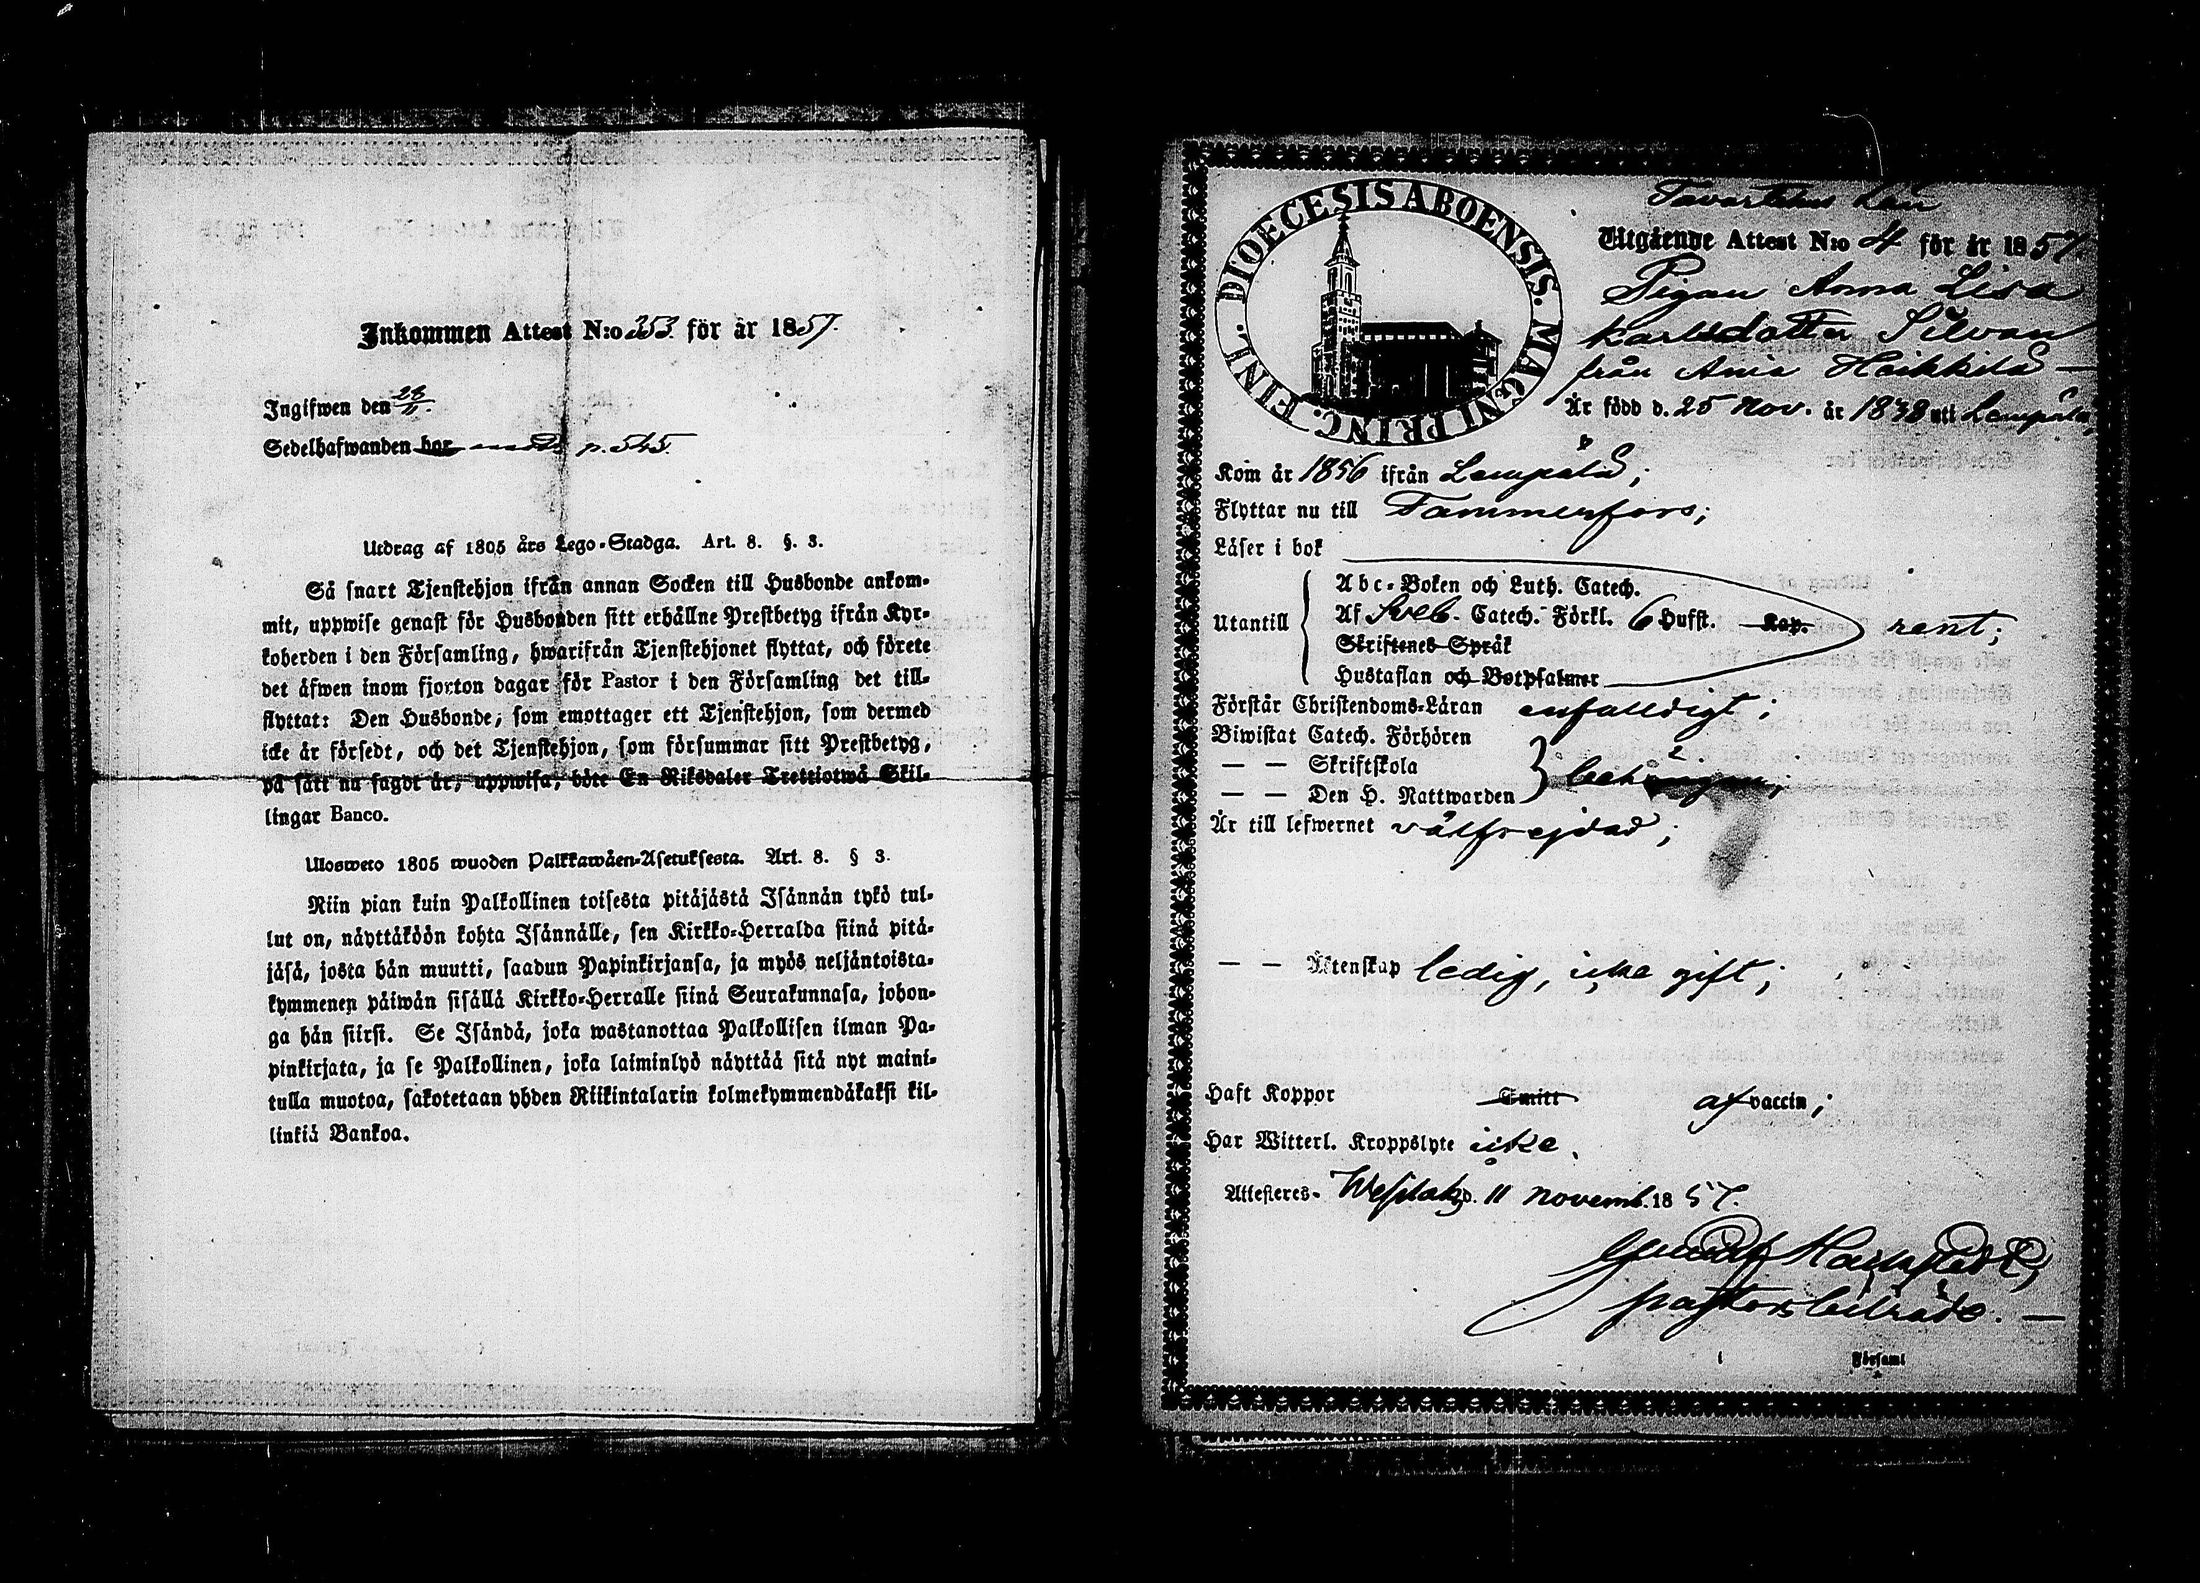 Inkommen Attest N:o 353. för år 1857.
Ingifwen den 28/11.
Sedelhafwanden har p. 545.
Utdrag af 1805 års Lego-Stadga. Art. 8. §. 3.
Så snart Tjenstehjon ifrån annan Socken till Husbonde ankom-
mit, uppwise genast för Husbonden sitt erhållne Prestbetyg ifrån Kyr-
koherden i den Församling, hwarifrån Tjenstehjonet flyttat, och förete
det äfwen inom fjorton dagar för Pastor i den Församling det till-
flyttat: Den Husbonde, som emottager ett Tjenstehjon, som dermed
icke är försedt, och det Tjenstehjon, som försummar sitt Prestbetyg,
på sätt nu sagdt är, uppwisa, böte En Riksdaler Trettiotwå Skil-
lingar Banco.
Ulosweto 1805 wuoden Palkkawäen-Asetuksesta. Art. 8. § 3.
Niin pian kuin Palkollinen toisesta pitäjästä Isännän tykö tul-
lut on, näyttäköön kohta Isännälle, sen Kirkko-Herralda siinä pitä-
jäsä, josta hän muutti, saadun Papinkirjansa, ja myös neljäntoista-
kymmenen päiwän sisällä Kirkko-Herralle siinä Seurakunnasa, johon-
ga hän siirsi. Se Isändä, joka wastanottaa Palkollisen ilman Pa-
pinkirjata, ja se Palkollinen, joka laiminlyö näyttää sitä nyt maini-
tulla muotoa, sakotetaan yhden Riikintalarin kolmekymmendäkaksi kil-
linkiä Bankoa.
DIOECESIS ABOENSIS. MAGNI PRINC. FINL.
Tavastehus Län
Utgående Attest N:o 4 för år 1857.
Pigan Anna Lisa
Karlsdotter Silvan
från Ania Heikkilä
Är född d. 25 Nov. år 1838 uti Lempälä,
Kom år 1856 ifrån Lempälä;
Flyttar nu till Tammerfors;
Läser i bok
Abc-Boken och Luth. Catech.
Utantill Af Sveb. Catech. Förkl. 6 Hufst. Kap. rent;
Skriftenes Språk
Hustaflan och Botpsalmer
Förstår Christendoms-Läran enfalldigt;
Biwistat Catech. Förhören
— — Skriftskola
— — Den H. Nattwarden behörigen;
Är till lefwernet välfrejdad;
— — Äktenskap ledig, icke gift;
Haft Koppor Smitt af vaccin;
Har Witterl. Kroppslyte icke.
Attesteres. d. 11 Novemb. 1857.
pastorsbiträde.
Församl